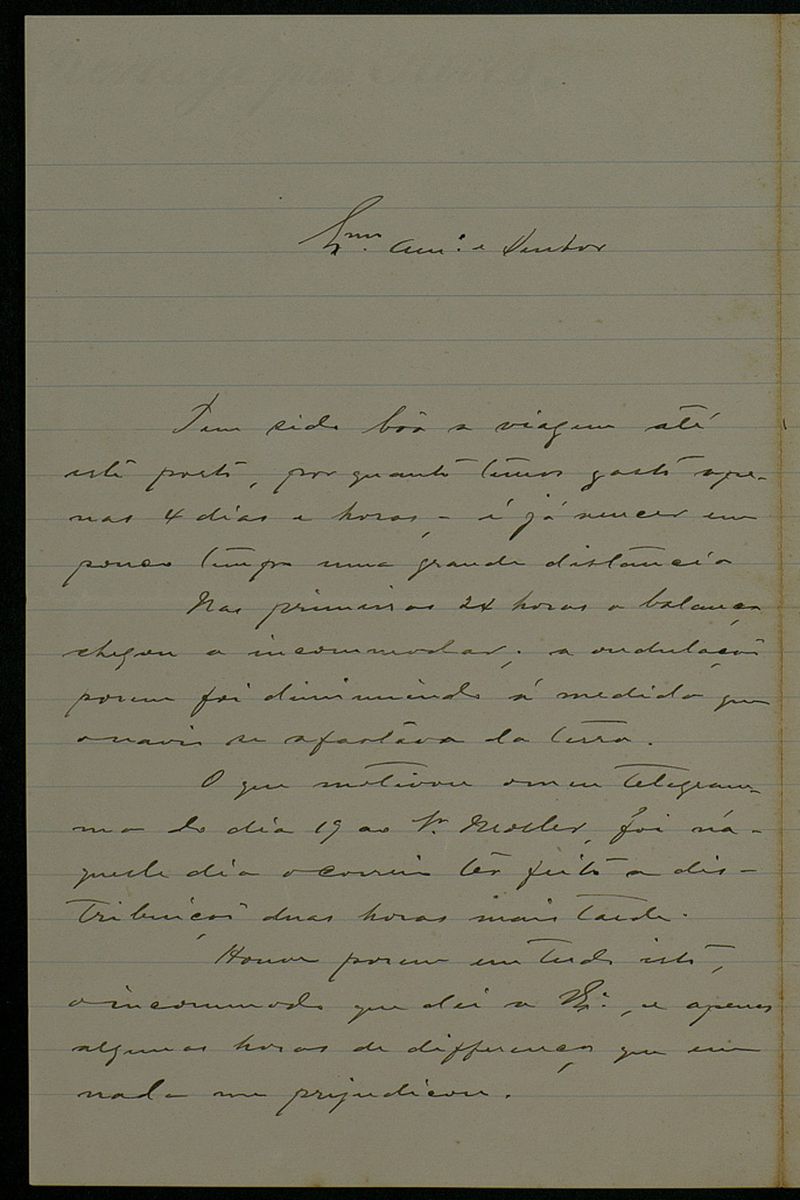 Exmo. Am.o e Senhor
Tem sido bôa a viagem até
este porto, por quanto temos gasto ape-
nas 4 dias e horas, - é já vencer em
pouco tempo uma grande distancia
Nas primeiras 24 horas o balanço
chegou a incommodar; a ondulação
porem foi diminuindo á medida que
o navio se afastava da terra.
O que motivou o meu telegram-
ma do dia 19 ao Sr. foi na-
quele dia o correio ter feito a dis-
tribuição duas horas mais tarde.
Houve porem em tudo isto,
o incommodo que dei a V. Ex.a, e apenas
algumas horas de differença, que em
nada me prejudicou.